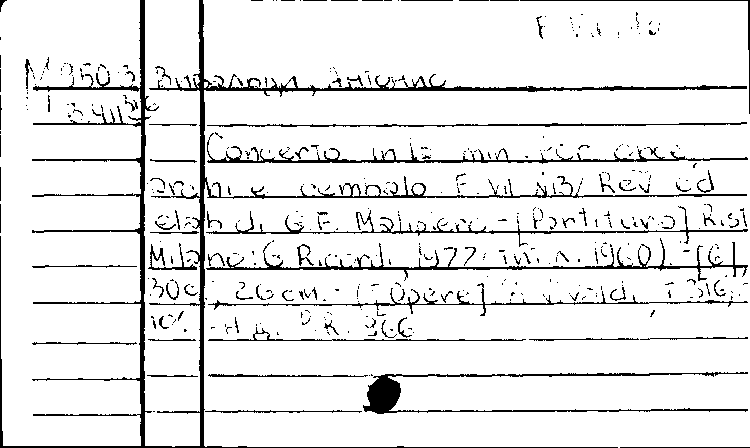 М 950 3 Вивалди, Антонио
3.411 316
Concerto in la min. per oboe,
archi e cembalo F. VII N13/ Rev ed
elab di G.F. Malipiero.-[Partitura] Rist
Milano: G Ricordi, 1977. (1960). -[6],
30 с., 26 cm. - ([Opere] A Vivaldi, T 316,
P.R. 966